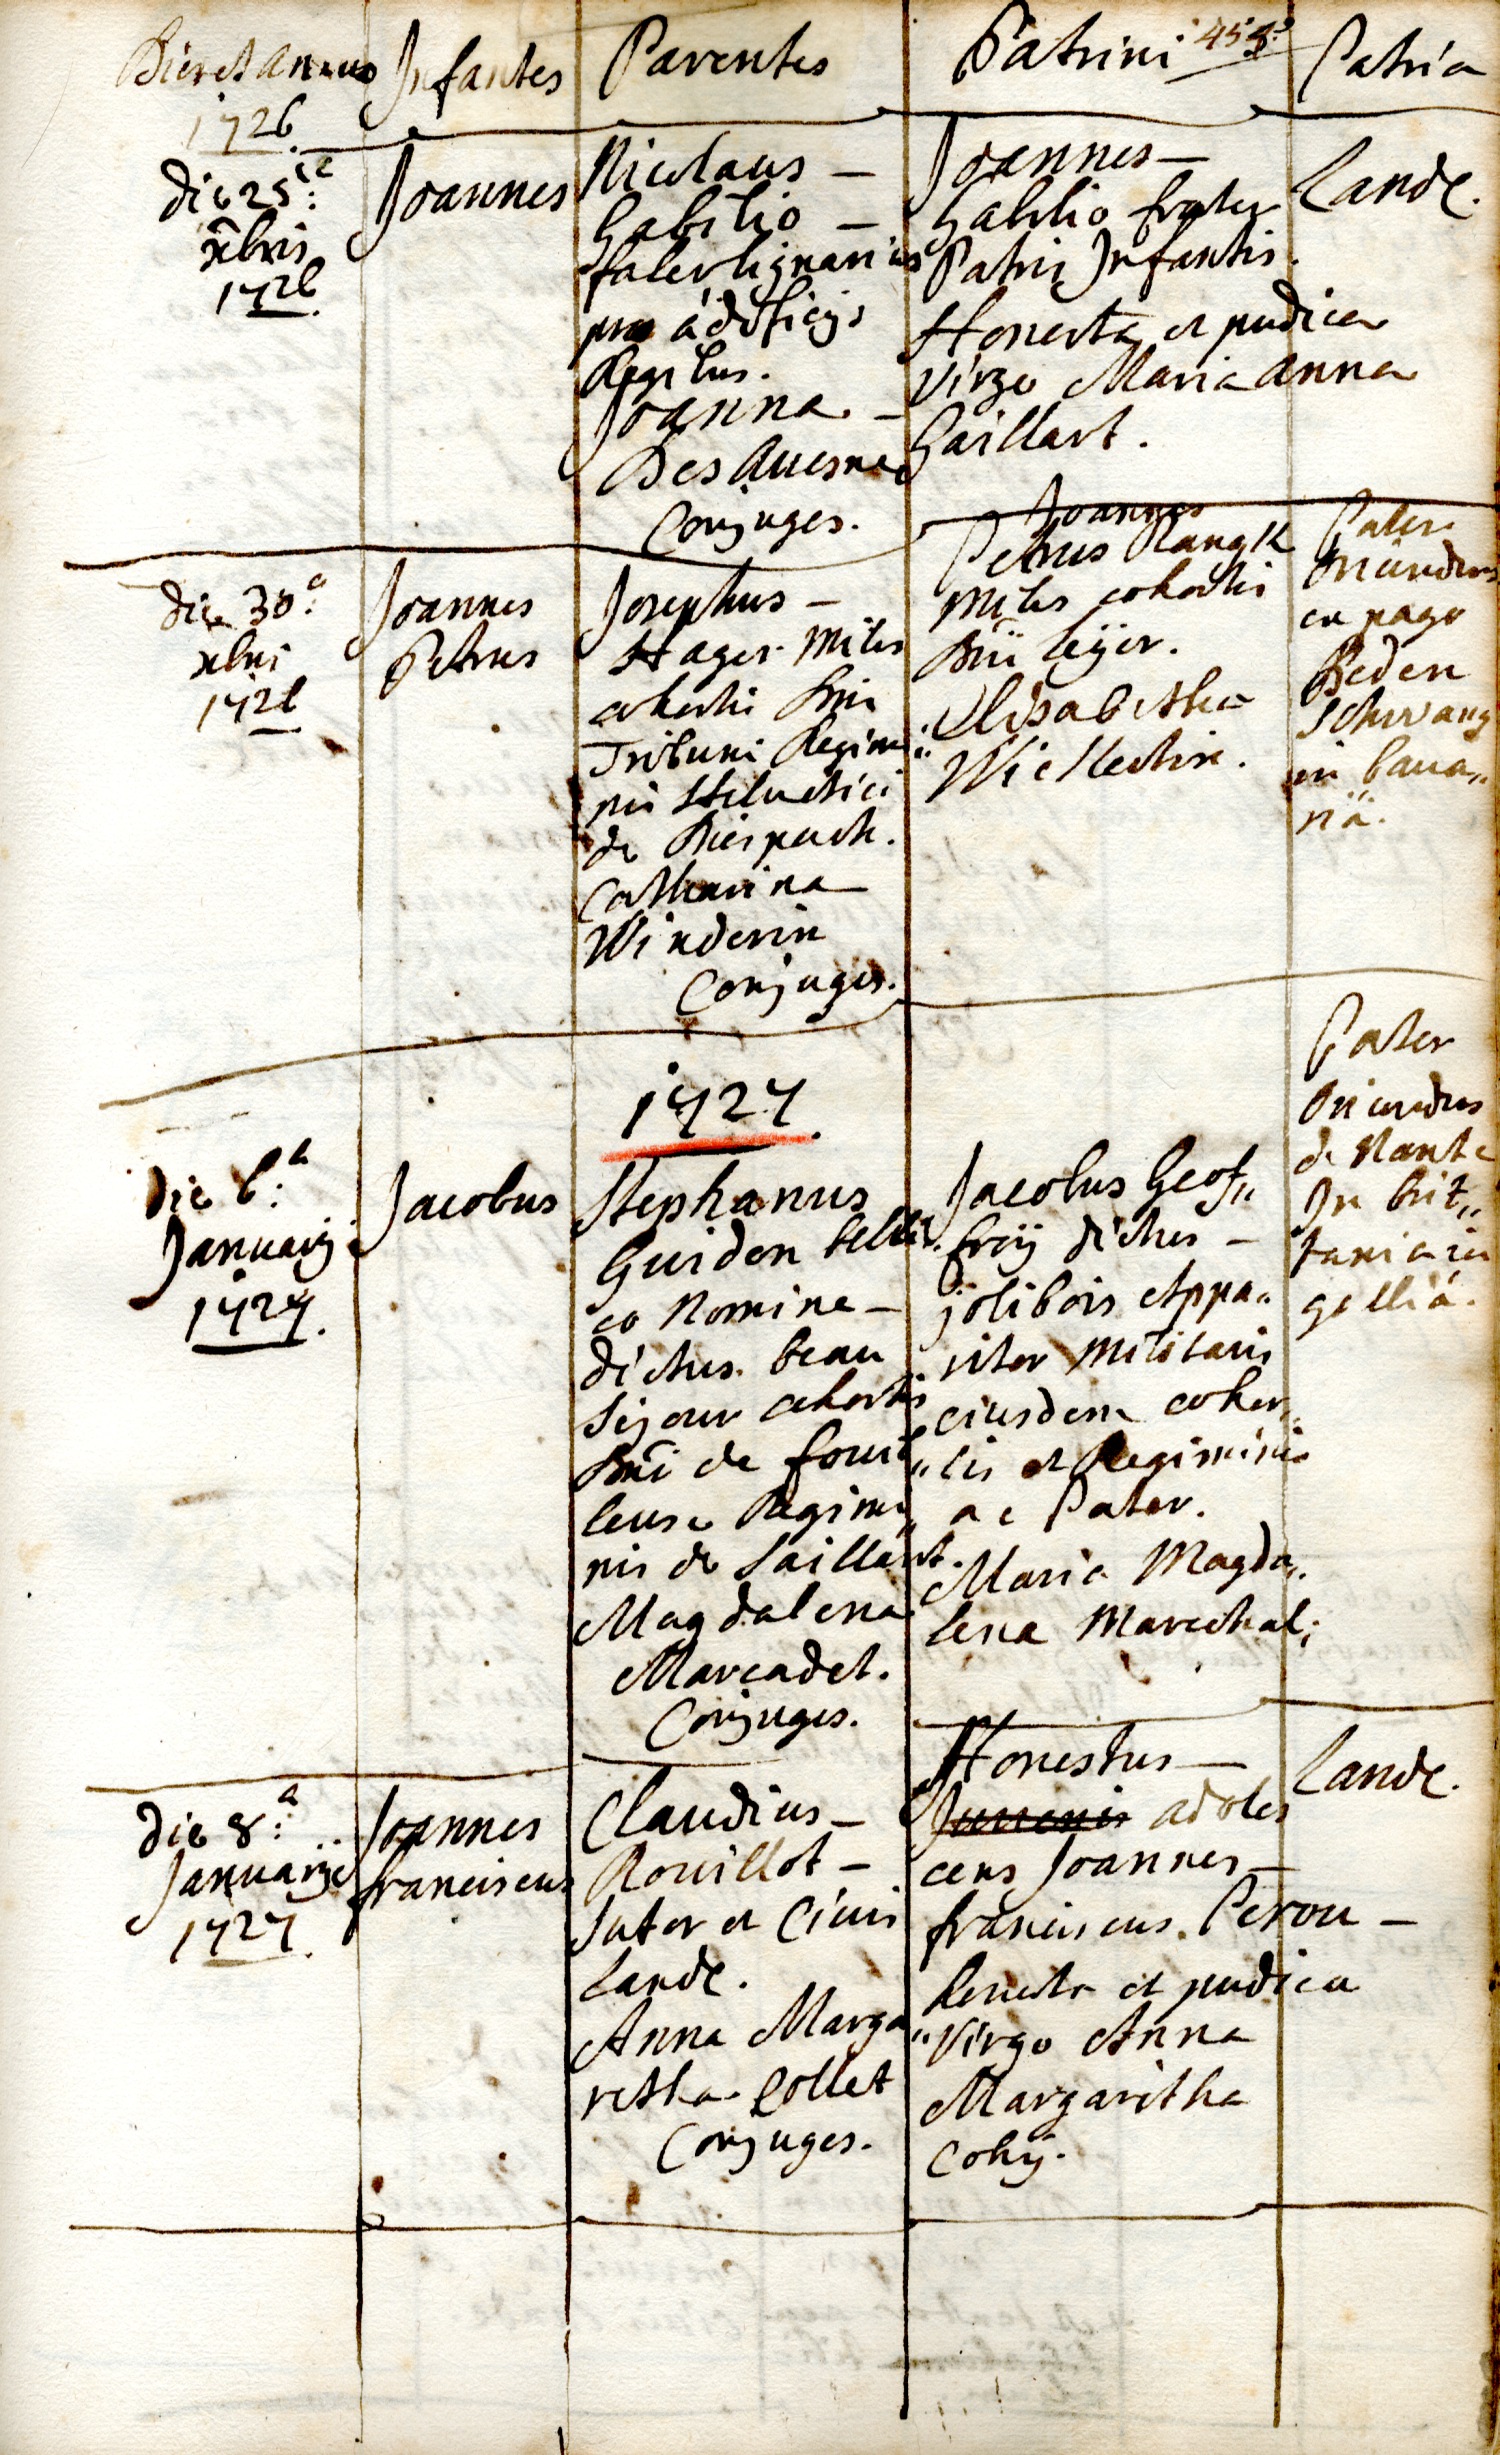 Dies et annus
1726
Infantes
Parentes
Patrini
Patria
die 25:a
xbris
1726.
Joannes
Nicolaus –
Gabilio –
faber lignarius
pro ædificijs
Regibus.
Joanna. –
Des Quesnes
Conjuges.
Joannes –
Gabilio frater
Patris Infantis.
Honesta et pudica
Virgo Maria Anna
Gaillart.
Lande.
die 30:a
xbris
1726
Joannes
Petrus
Josephus –
Hager Miles
cohortis Dni
Tribuni Regimi„
nis Helvetici
de Diespach.
Catharina
Winderin
Conjuges.
Joannes
Petrus Rangk
Miles cohortis
Dni leÿer.
Elisabetha
Pater
oriundus
ex pago
Beden
schwang
in bava„
riâ.
1727.
die 6:a
Januarij
1727.
Jacobus
Stephanus
Guidon belli„
co Nomine –
dictus beau
sejour cohortis
Dni de fouil„
leuse Regimi„
nis de Saillant.
Magdalena
Marcadet.
Conjuges.
Jacobus Geof„
froÿ dictus –
jolibois Appa„
ritor militaris
eiusdem cohor„
tis et Regiminis
ac Pater.
Maria Magda„
lena Marechal;
Pater
Oriundus
de Nante
In brit„
tania in
galliâ.
die 8:a
Januarij
1727.
Joannes
franciscus
Claudius –
Rouillot –
Sutor et Civis
Lande.
Anna Marga„
retha Collet
Conjuges.
Honestus –
Juvenis adoles
cens Joannes –
franciscus. Perou –
honesta et pudica
Virgo Anna
Margaritha
Cohÿ.
Lande.